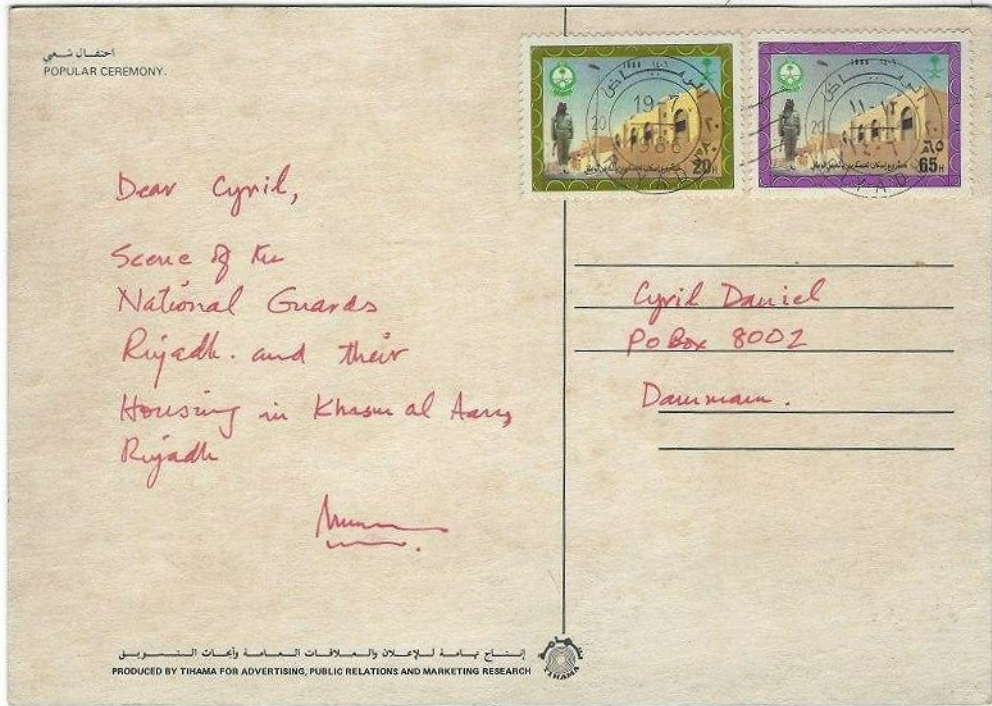 احتفال شعبي
POPULAR CEREMONY.
Dear Cyril,
Scene of the
National Guards
Riyadh. and their
Housing in Khasm al Aan,
Riyadh
الرياض
19-7
1986
20
٢٠
20H
الرياض
١١-١٢
١٤٠٦
20
٦٥
65H
Cyril Daniel
PO Box 8002
Dammam.
إنتاج تهامة للإعلان والعلاقات العامة وأبحاث التسويق
PRODUCED BY TIHAMA FOR ADVERTISING, PUBLIC RELATIONS AND MARKETING RESEARCH
تهامة
TIHAMA